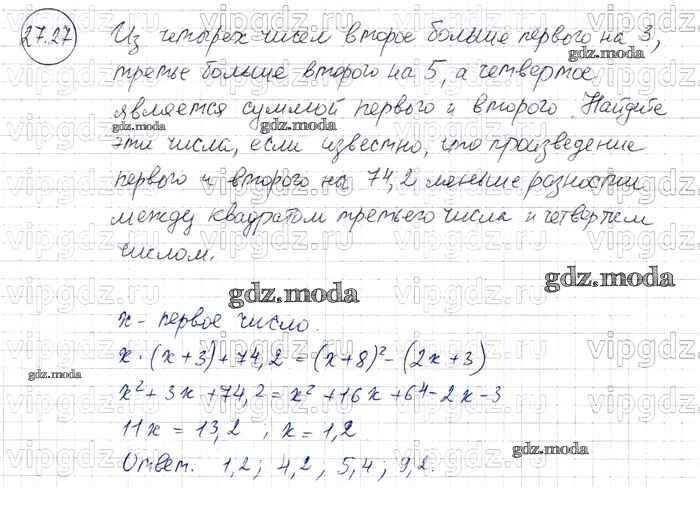 27.27
Из четырех чисел второе больше первого на 3,
gdz.moda
третье больше второго на 5, а четвертое
является суммой первого и второго. Найдите
gdz.moda gdz.moda
эти числа, если известно, что произведение
первого и второго на 74,2 меньше разности
между квадратом третьего числа и четвертым
числом.
gdz.moda
gdz.moda
x - первое число.
x · (x+3) + 74,2 = (x+8)² - (2x+3)
gdz.moda
x² + 3x + 74,2 = x² + 16x + 64 - 2x - 3
11x = 13,2 , x = 1,2
gdz.moda
Ответ. 1,2 ; 4,2 ; 5,4 ; 9,2.
vipgdz.ru